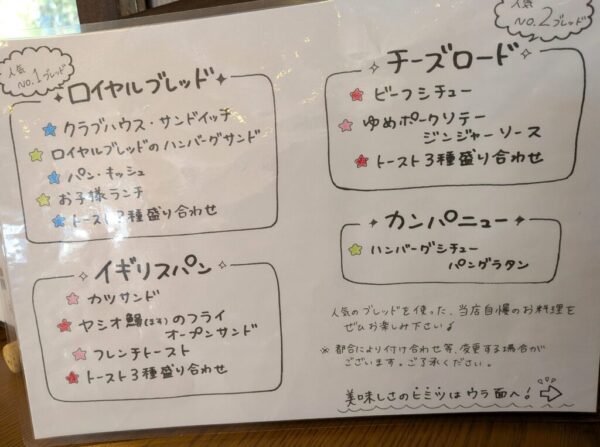 人気
No.1ブレッド
ロイヤルブレッド
クラブハウス・サンドイッチ
ロイヤルブレッドのハンバーグサンド
パン・キッシュ
お子様ランチ
トースト3種盛り合わせ
イギリスパン
カツサンド
ヤシオ鱒(ます)のフライ
オープンサンド
フレンチトースト
トースト3種盛り合わせ
人気
No.2ブレッド
チーズロード
ビーフシチュー
ゆめポークソテー
ジンジャーソース
トースト3種盛り合わせ
カンパニュー
ハンバーグシチュー
パングラタン
人気のブレッドを使った、当店自慢のお料理を
ぜひお楽しみ下さい♪
※都合により付け合わせ等、変更する場合が
ございます。ご了承ください。
美味しさのヒミツはウラ面へ!